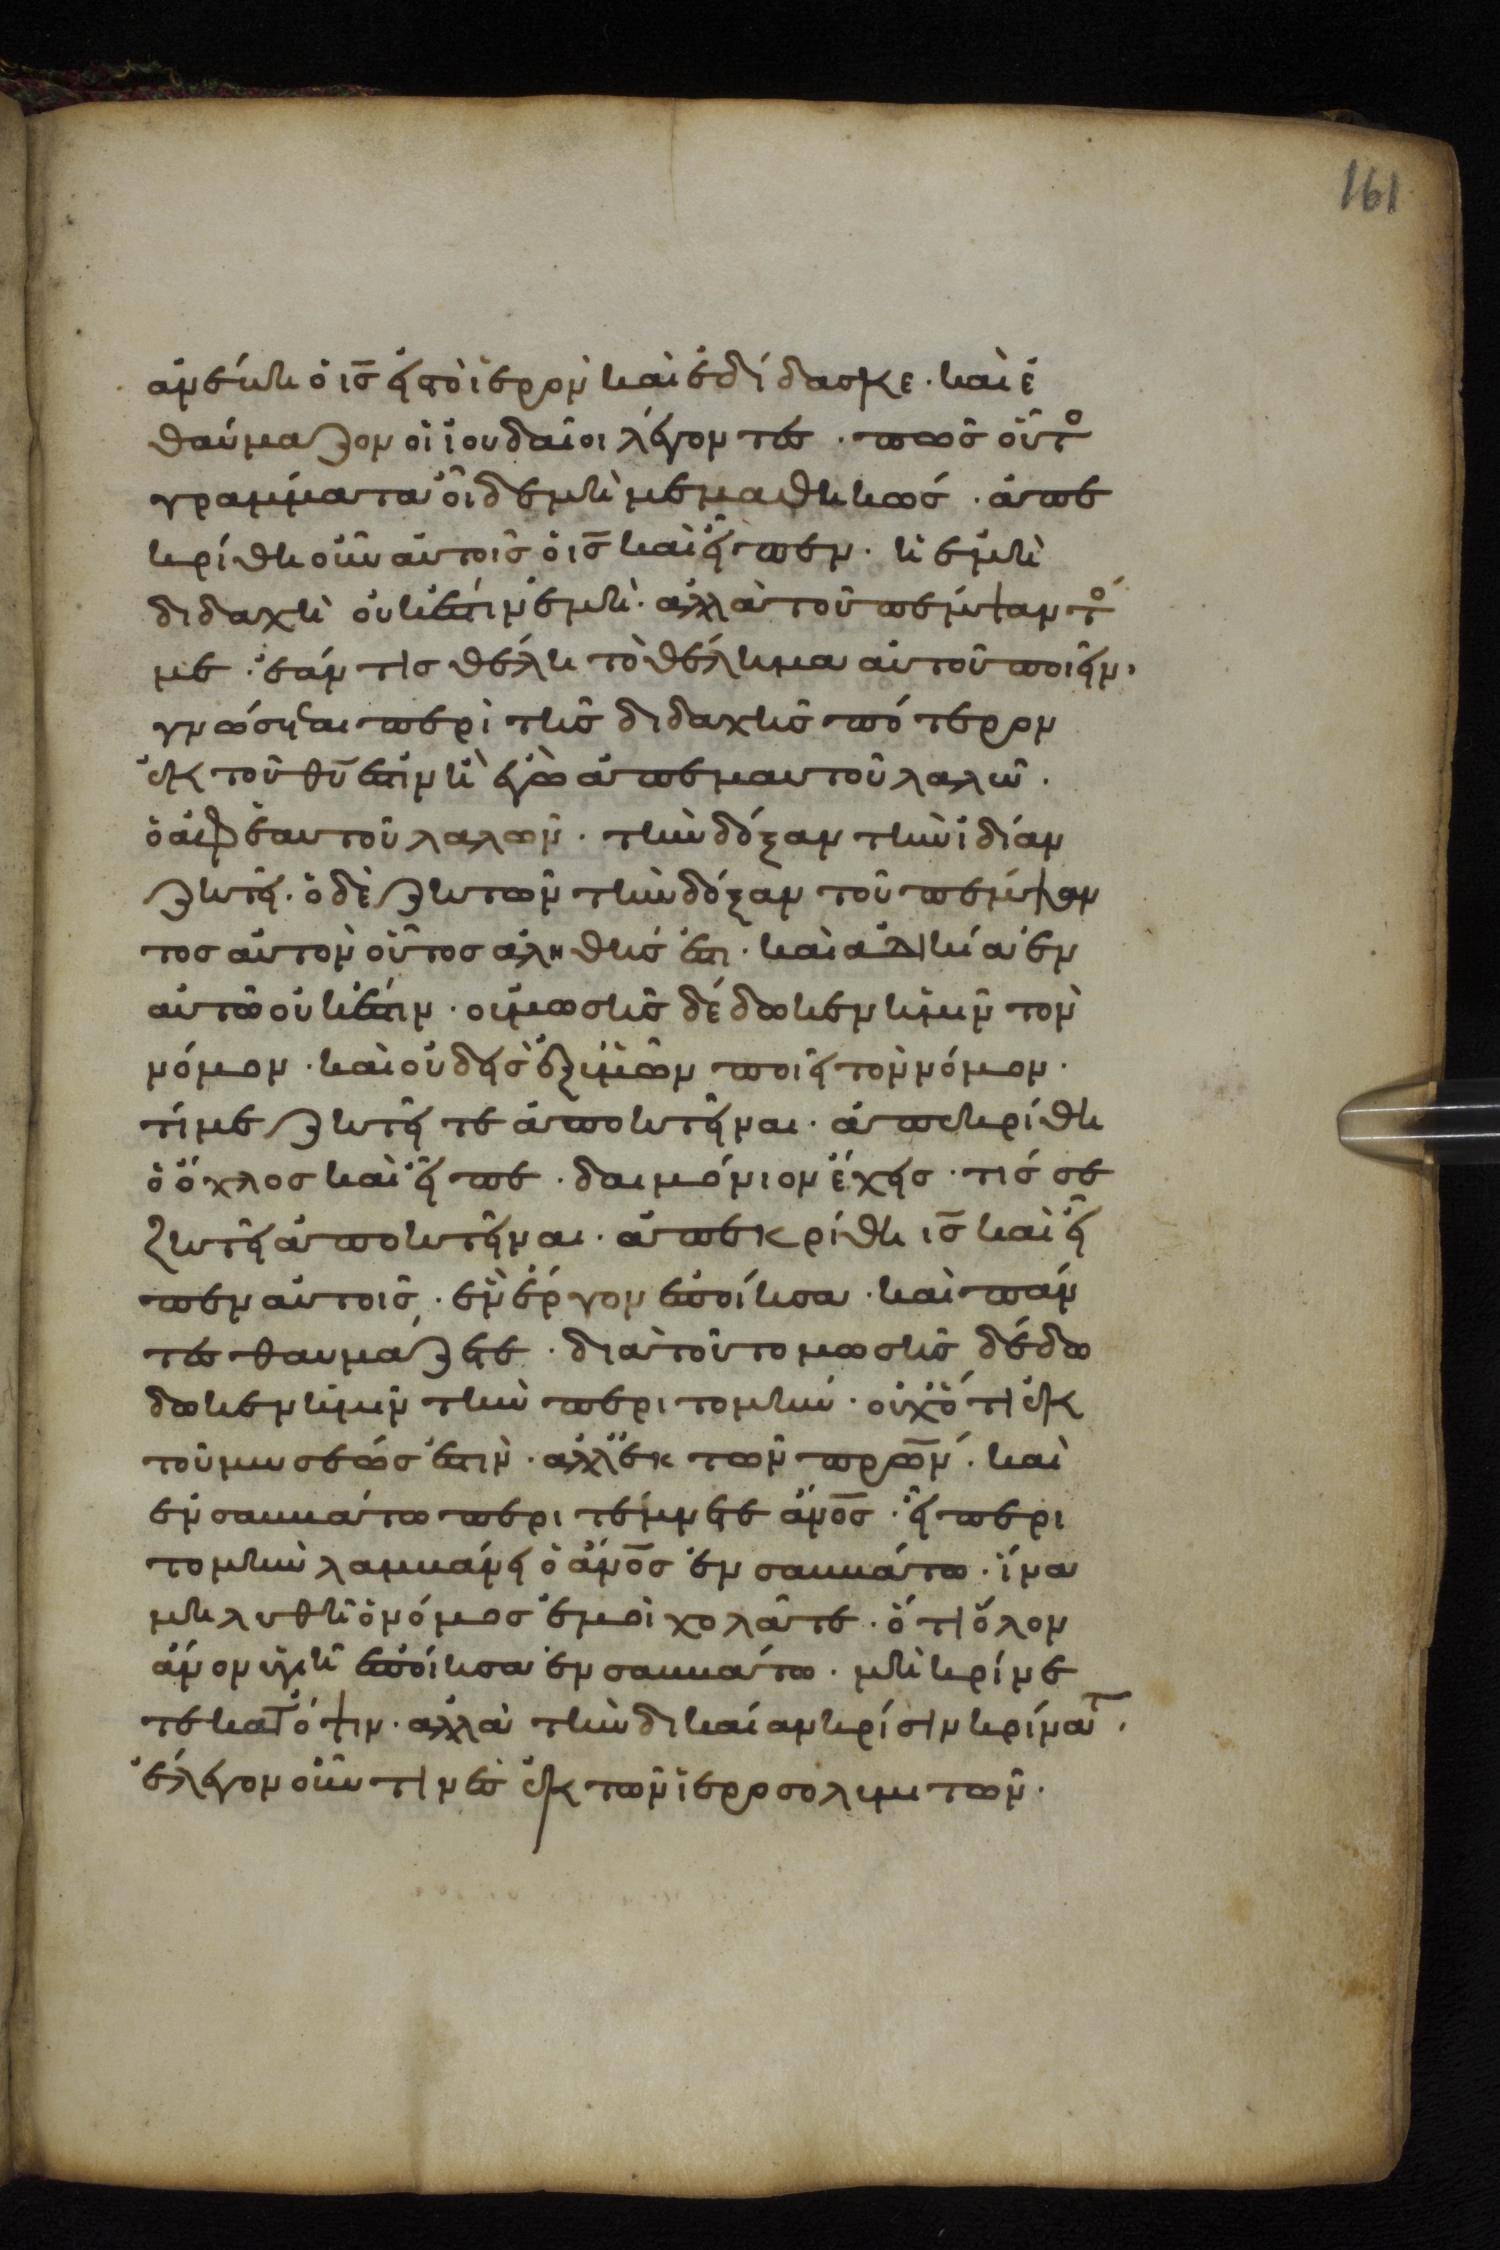 161
ἀνέβη ὁ ις̅ εἰς τὸ ἱερὸν καὶ ἐδίδασκε· καὶ ἐ
θαύμαζον οἱ ἰουδαῖοι λέγοντες· πῶς οὗτο
γράμματα οἶδε μὴ μεμαθηκώς· ἀπε
κρίθη οὖν αὐτοῖς ὁ ις̅ καὶ εἶπεν· ἡ ἐμὴ
διδαχὴ οὐκ ἔστιν ἐμὴ· ἀλλὰ τοῦ πέμψαντό
με· ἐάν τις θέλη τὸ θέλημα αὐτοῦ ποιεῖν·
γνώσεται περὶ τῆς διδαχῆς πότερον
ἐκ τοῦ θυ̅ ἐστιν ἢ ἐγὼ ἀπ ἐμαυτοῦ λαλῶ·
ὁ ἀφ ἑαυτοῦ λαλῶν· τὴν δόξαν τὴν ἰδίαν
ζητεῖ· ὁ δὲ ζητῶν τὴν δόξαν τοῦ πέμψαν
τος αὐτὸν οὗτος ἀληθής ἐστι· καὶ ἀδικία ἐν
αὐτῶ οὐκ ἔστιν· οὐ μωσῆς δέδωκεν ὑμῖν τὸν
νόμον· καὶ οὐδεὶς ἐξ ὑμῶν ποιεῖ τὸν νόμον·
τί με ζητεῖτε ἀποκτεῖναι· ἀπεκρίθη
ὁ ὄχλος καὶ εἶπε· δαιμόνιον ἔχεις· τίς σε
ζητεῖ ἀποκτεῖναι· ἀπεκρίθη ις̅ καὶ εἶ
πεν αὐτοῖς· ἓν ἔργον ἐποίησα· καὶ πάν
τες θαυμάζετε· διὰ τοῦτο μωσῆς δέδω
δωκεν ὑμῖν τὴν περιτομήν· οὐχ ὅτι ἐκ
τοῦ μωσέως ἐστὶν· ἀλλ ἐκ τῶν πρω̅ν· καὶ
ἐν σαββάτω περιτέμνετε ἄνο̅ς· εἰ περι
τομὴν λαμβάνει ὁ ἄνο̅ς ἐν σαββάτω· ἵνα
μὴ λυθῆ ὁ νόμος ἐμοὶ χολᾶτε· ὅτι ὅλον
ἄνον ὑγιῆ ἐποίησα ἐν σαββάτω· μὴ κρίνε
τε κατ ὄψιν· ἀλλὰ τὴν δικαίαν κρίσιν κρίνατ·
ἔλεγον οὖν τινὲς ἐκ τῶν ἱεροσολυμιτῶν·